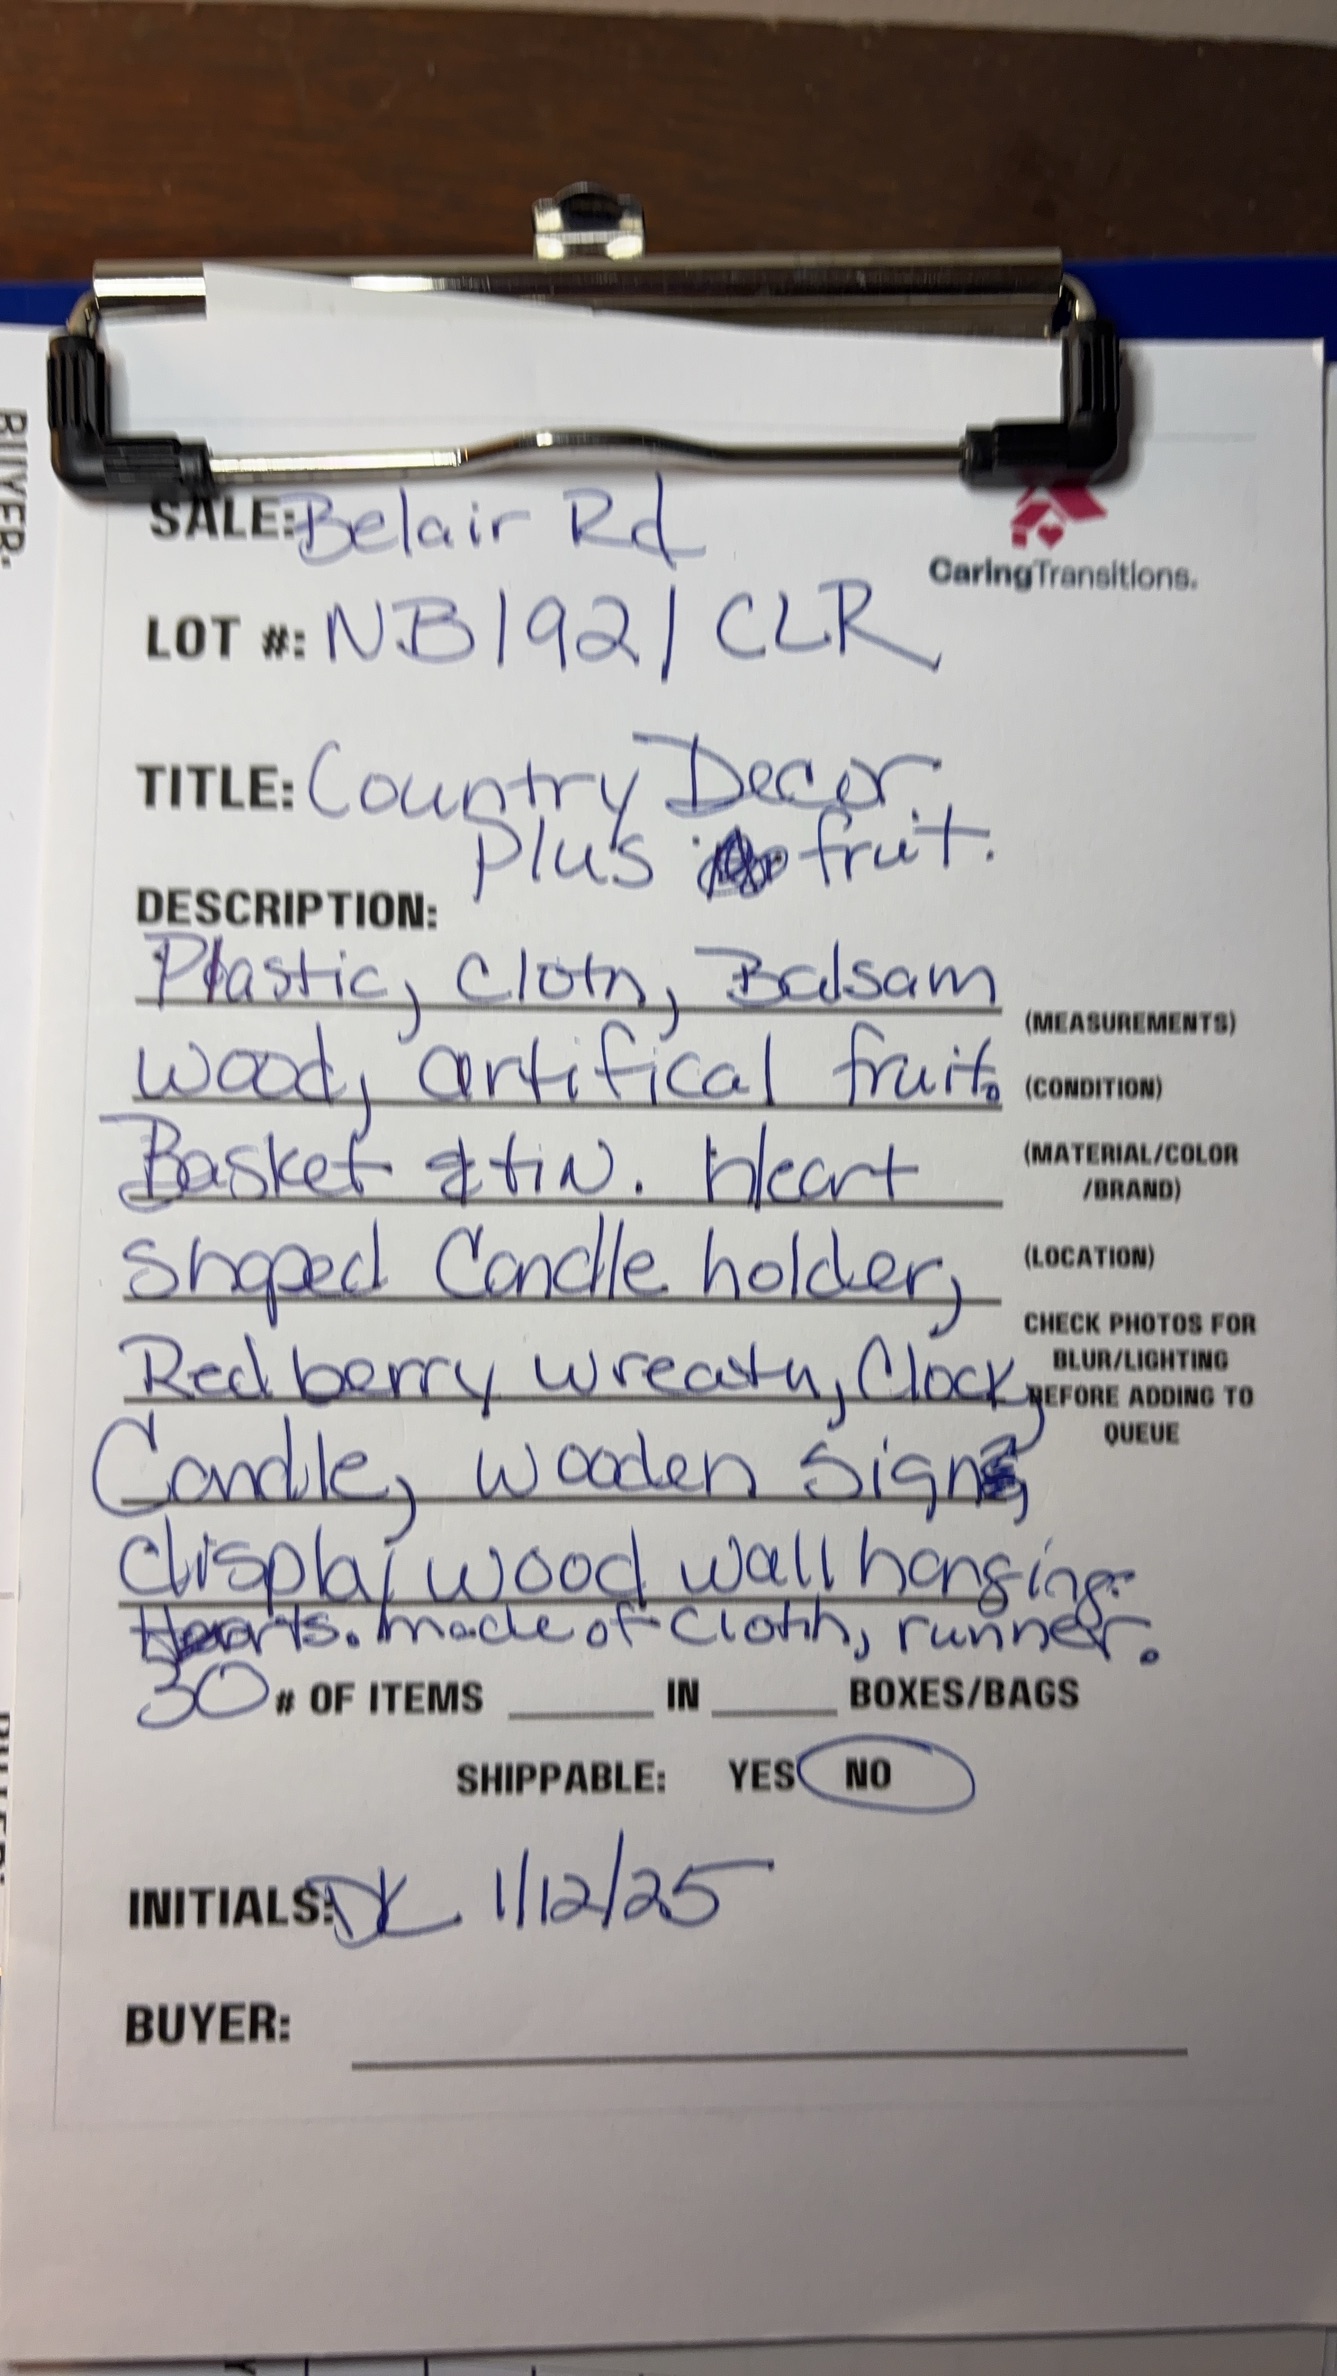 SALE: Belair Rd
CaringTransitions.
LOT #: NB1921 CLR
TITLE: Country Decor
Plus fruit.
DESCRIPTION:
Plastic, Cloth, Balsam
(MEASUREMENTS)
wood, artifical fruit.
(CONDITION)
Basket & tin. Heart
(MATERIAL/COLOR
/BRAND)
Shaped Candle holder,
(LOCATION)
CHECK PHOTOS FOR
BLUR/LIGHTING
BEFORE ADDING TO
QUEUE
Red berry wreath, Clock,
Candle, wooden signs,
display wood wall hanging.
Hearts. made of Cloth, runner.
30 # OF ITEMS ____ IN ____ BOXES/BAGS
SHIPPABLE: YES NO
INITIALS: DK 1/12/25
BUYER:
BUYER.